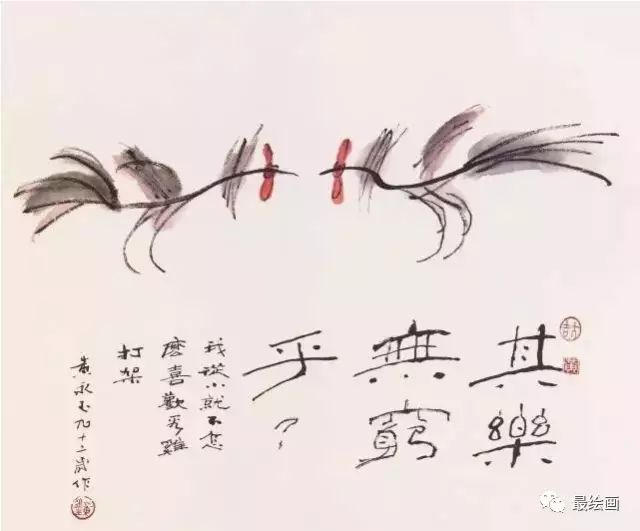 其樂
無窮
乎?
我從小就不怎
麼喜歡看雞
打架
黃永玉九十二歲作
最绘画